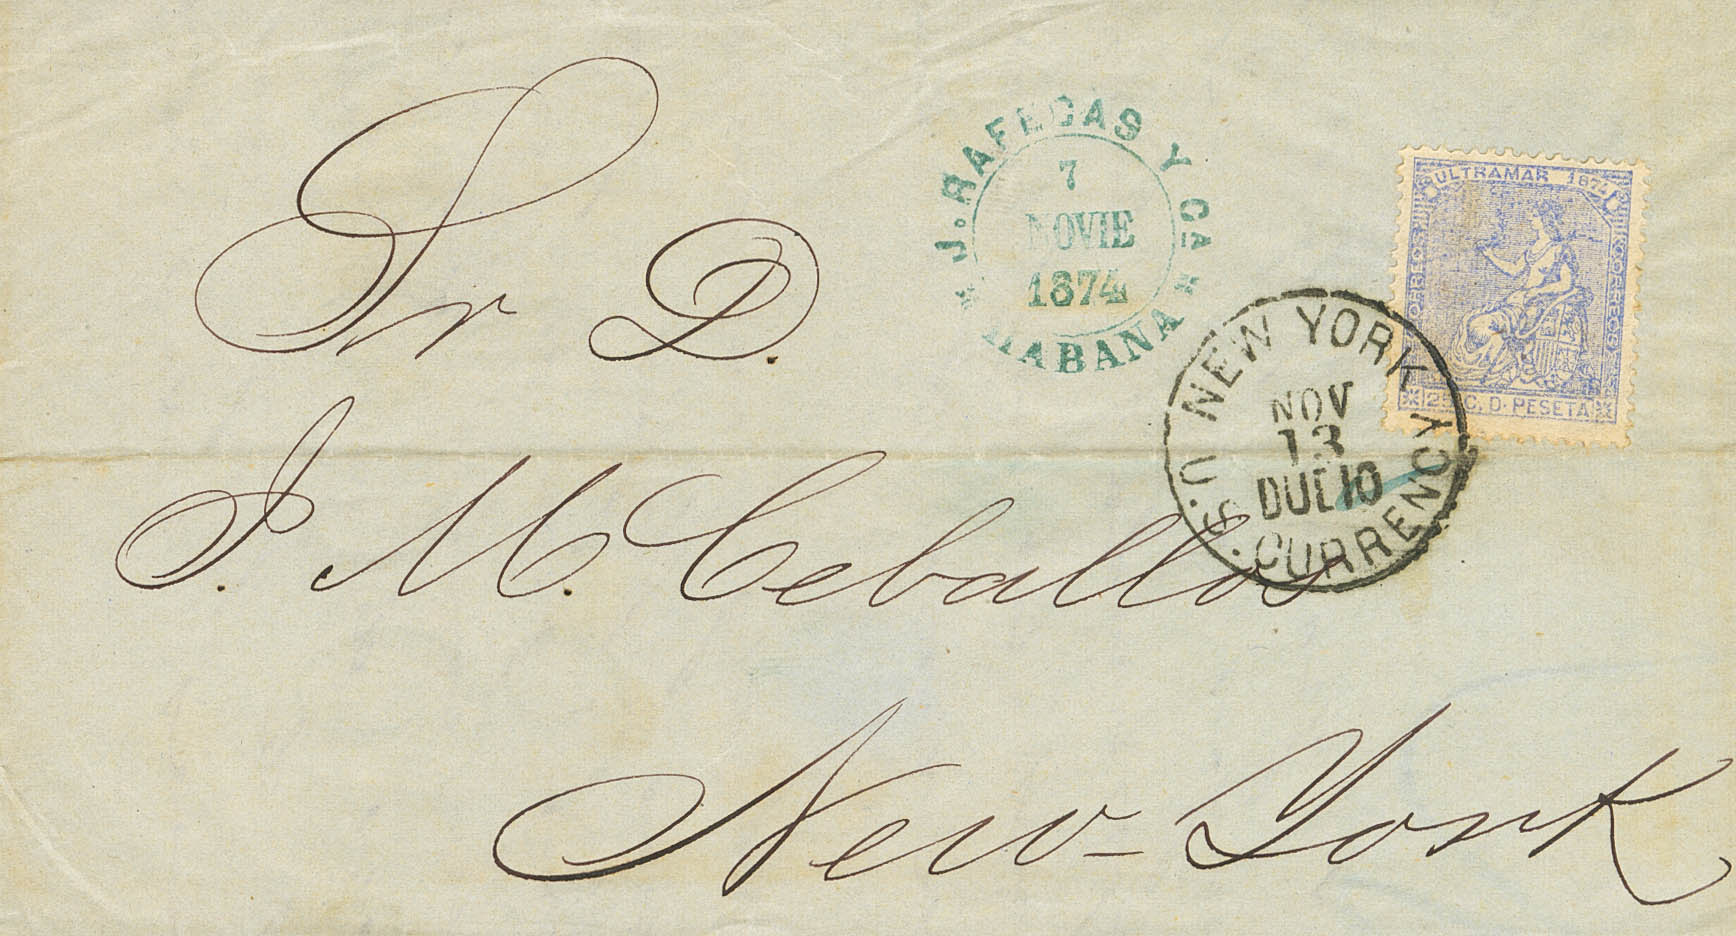 J. RAFECAS Y Ca
7
NOVIE
1874
HABANA
ULTRAMAR 1874
CORREOS
CORREOS
25 C. D. PESETA
NEW YORK
NOV
13
DUE 10
U.S. CURRENCY
Sr D.
J. M. Ceballos
New-York